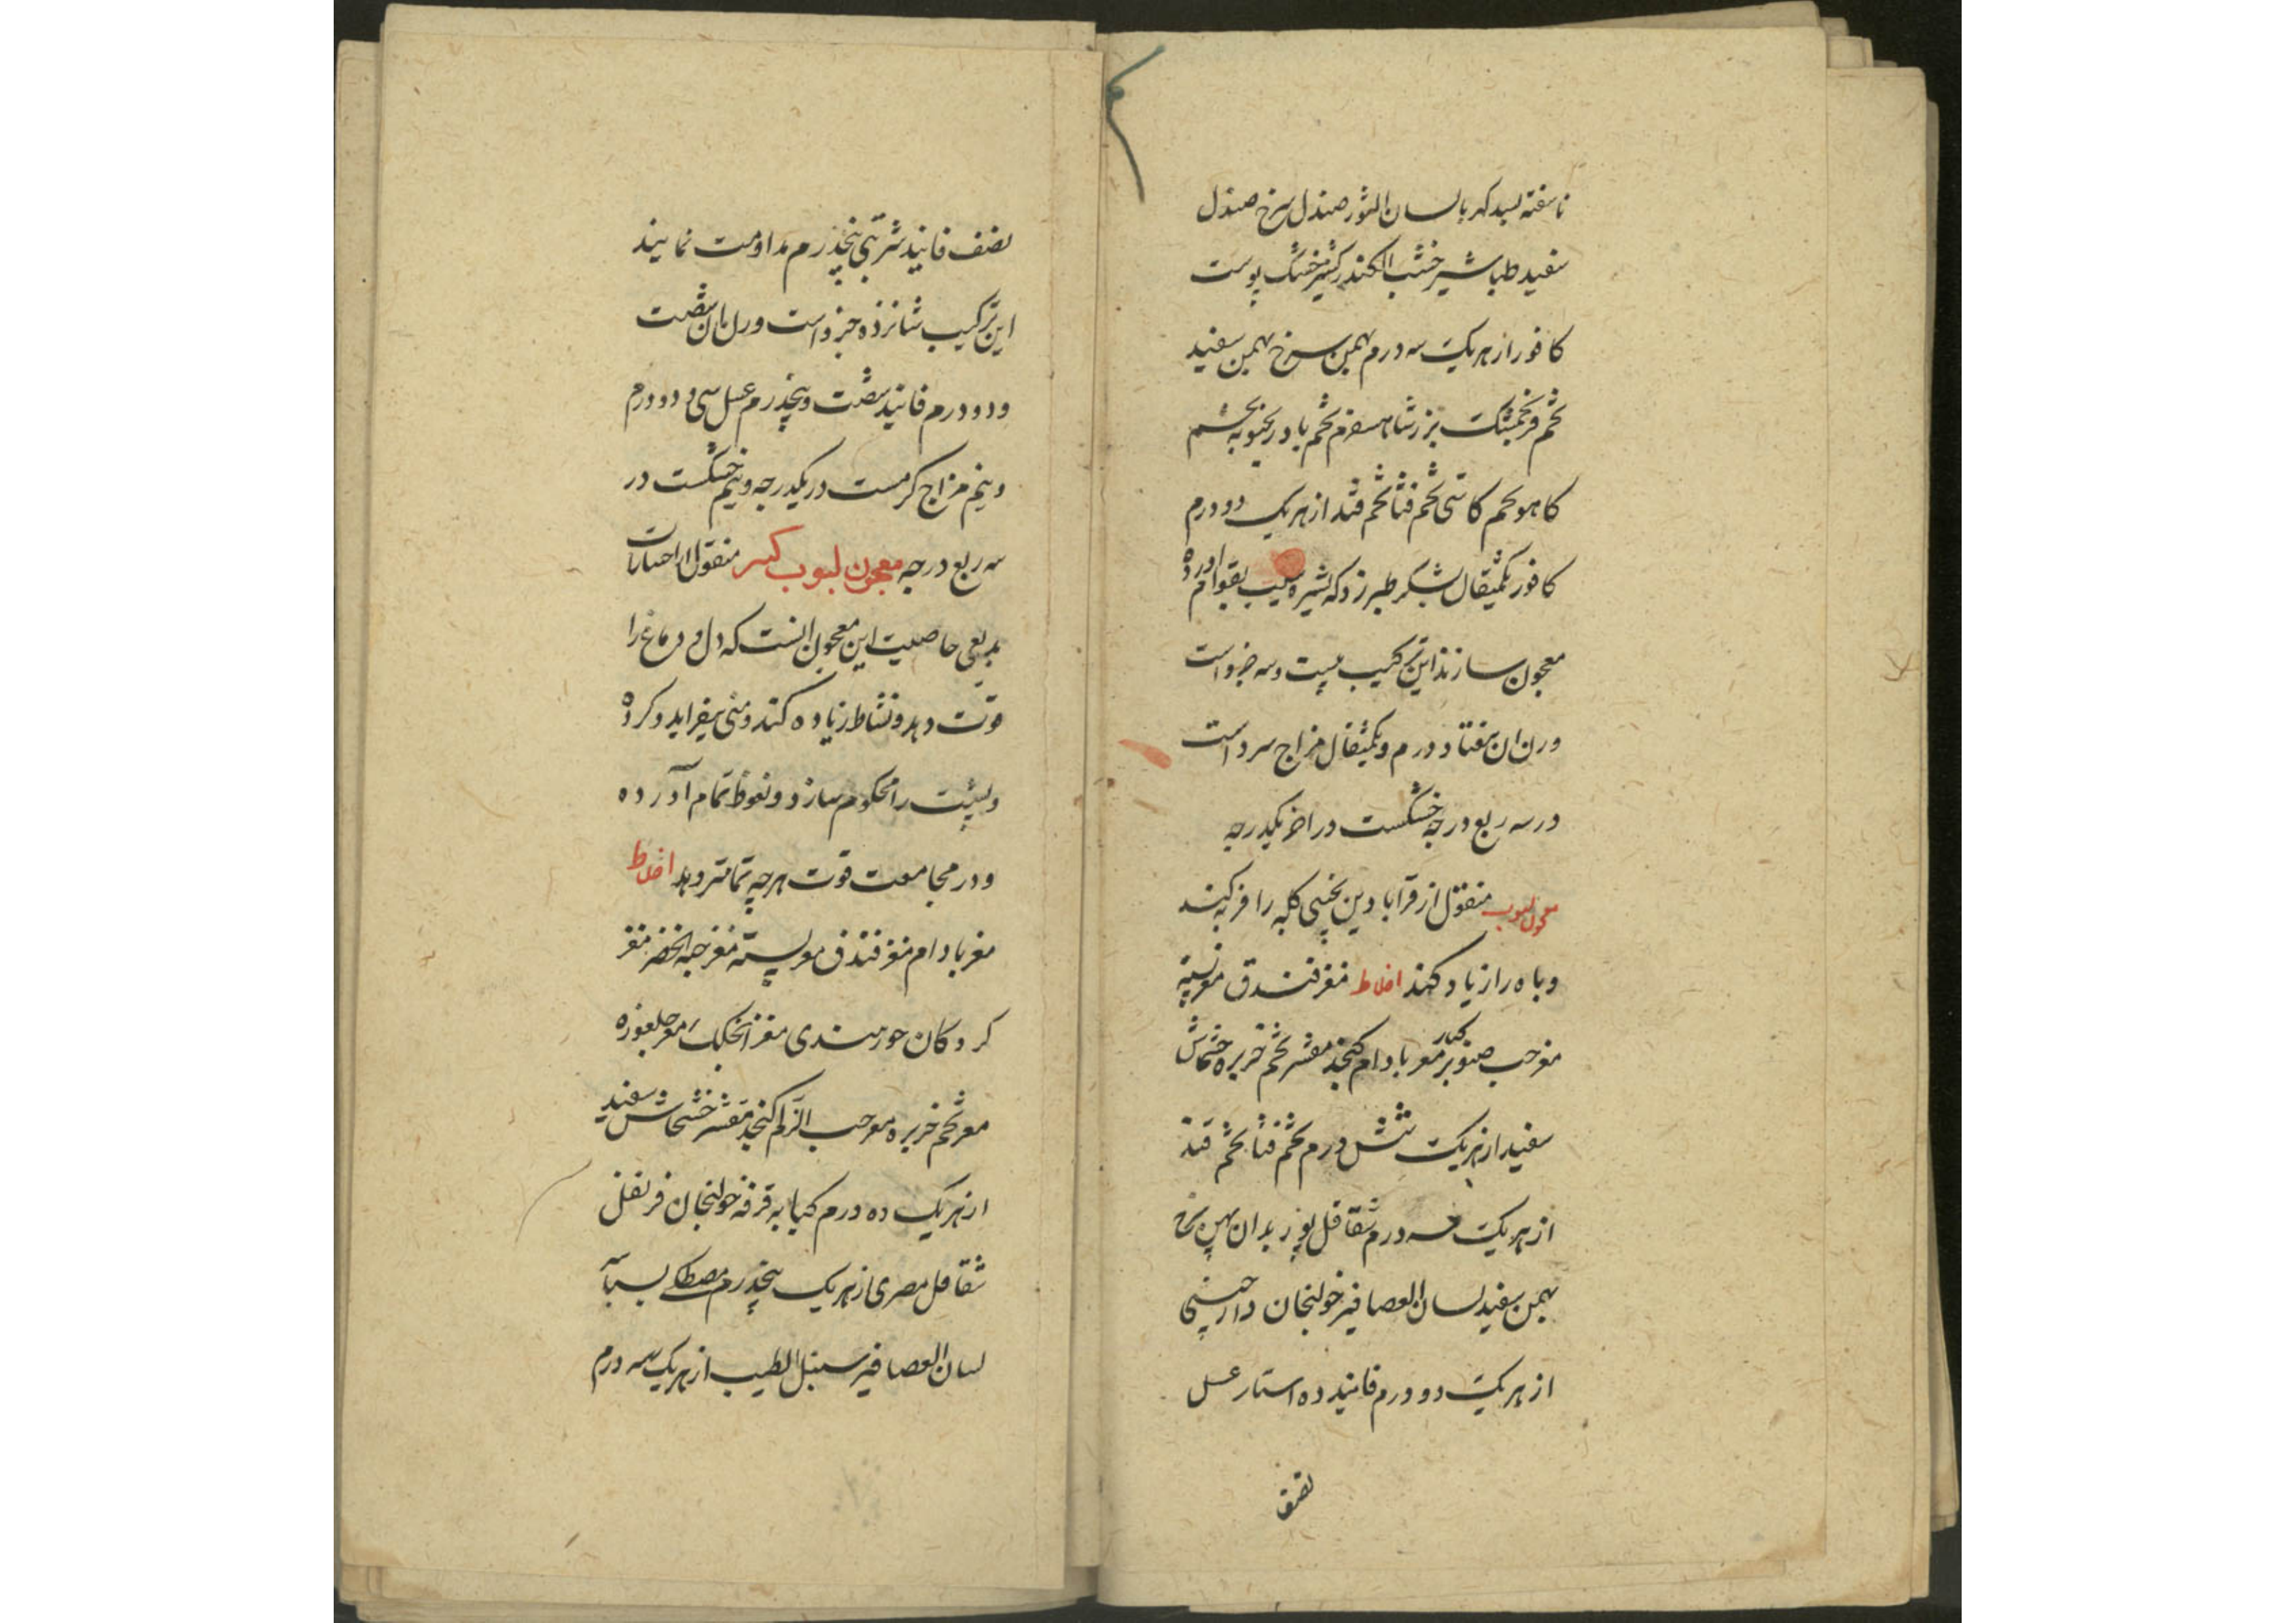 ناسفته بسد کهربا لسان الثور صندل سرخ صندل
سفید طباشیر خشب الکندر کشنیز خشک پوست
کافور از هر یک سه درم بهمن سرخ بهمن سفید
تخم فرنجمشک بزر شاهسفرم تخم بادرنجبویه تخم
کاهو تخم کاسنی تخم قثا تخم قثد از هر یک دو درم
کافور یکمثقال بشکر طبرزد که بشیره سیب بقوام آورده
معجون سازند این ترکیب بیست و سه جزو است
وزن ان هفتاد درم و یکمثقال مزاج سرد است
در سه ربع درجه خشکست در اخر یکدرجه
معجون لبوب منقول از قرابادین کلیه را فربه کند
و باه را زیاد کند اخلاط مغز فندق مغز پسته
مغز حب صنوبر کبار مغز بادام کنجد مقشر تخم خربزه خشخاش
سفید از هر یک شش درم تخم قثا تخم قثد
از هر یک سه درم شقاقل بوزیدان بهمن سرخ
بهمن سفید لسان العصافیر خولنجان دارچینی
از هر یک دو درم فانید ده استار عسل
نصف
نصف فانید شربتی پنجدرم مداومت نمایند
این ترکیب شانزده جزو است وزن ان شصت
و دو درم فانید شصت و پنجدرم عسل سی و دو درم
و نیم مزاج گرمست در یکدرجه و نیم خشکست در
سه ربع درجه معجون لبوب کبیر منقول از اختیارات
بدیعی خاصیت این معجون انست که دل و دماغ را
قوت دهد و نشاط زیاده کند و منی بیفزاید و کرده
و پشت را محکوم سازد و نعوظ تمام آورده
و در مجامعت قوت هرچه تمامتر دهد اخلاط
مغز بادام مغز فندق مغز پسته مغز حبة الخضر مغز
کردکان جوز هندی مغز انجکک مغز جلغوزه
مغز تخم خربزه مغز حب الزلم کنجد مقشر خشخاش سفید
از هر یک ده درم کبابه قرفه خولنجان قرنفل
شقاقل مصری از هر یک پنجدرم مصطکی بسباسه
لسان العصافیر سنبل الطیب از هر یک سه درم